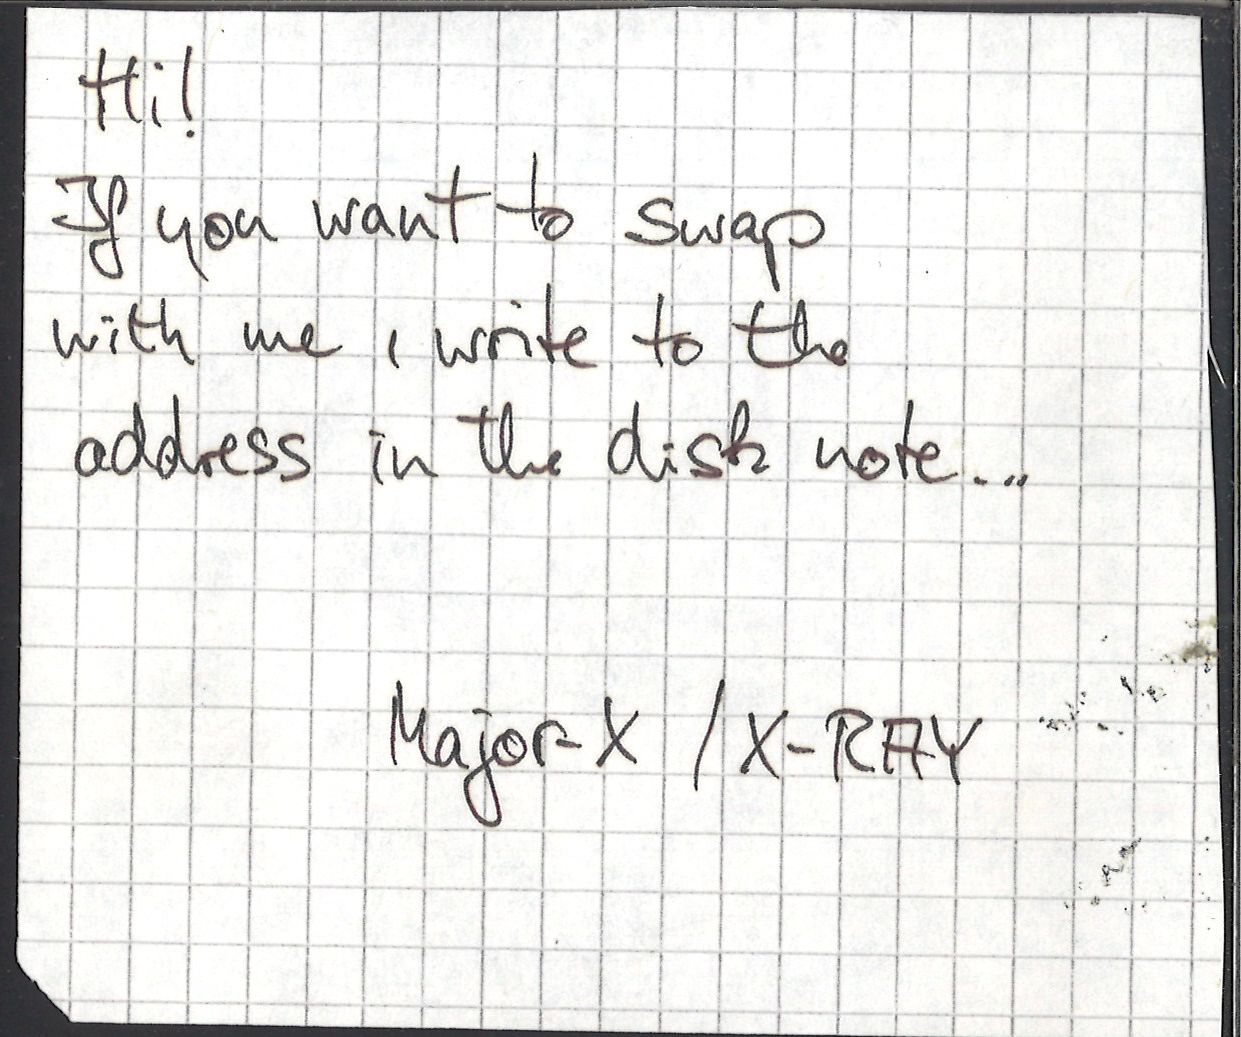 Hi!
If you want to swap
with me, write to the
address in the disk note...
Major-X / X-RAY